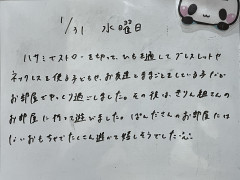 1/31 水曜日
ハサミでストローを切って、ひもを通してブレスレットや
ネックレスを作る子どもや、お友達とままごとをしている子だが
お部屋でゆっくり過ごしました。その後は、きりん組さんの
お部屋に行って遊びました。ぱんだ組のお部屋には
ないおもちゃでたくさん遊べて嬉しそうでした